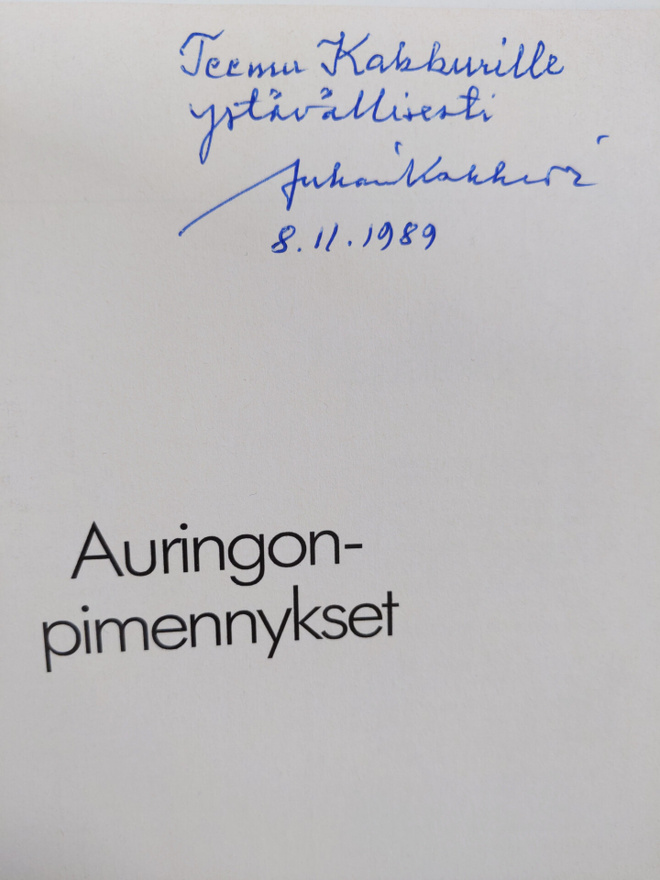 Teemu Kakkurille
ystävällisesti
Juhani Kakkuri
8.11.1989
Auringon-
pimennykset